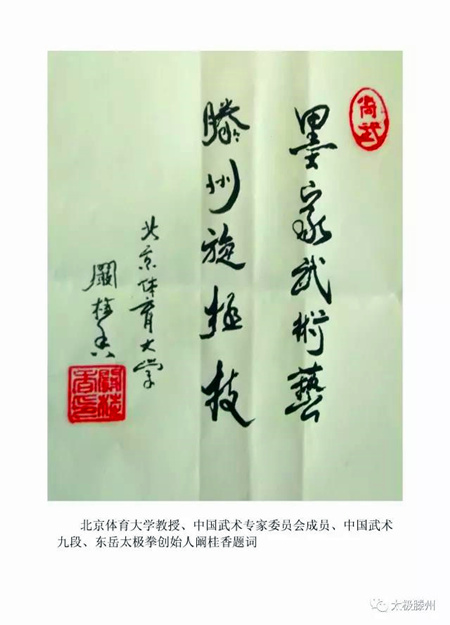 尚武
墨家武術藝
滕州旋極技
北京体育大学
阚桂香
阚桂香印
北京体育大学教授、中国武术专家委员会成员、中国武术
九段、东岳太极拳创始人阚桂香题词
太极滕州